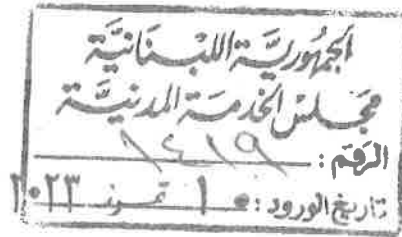 الجمهوريَّة اللبنانيَّة
مجلس الخدمة المدنيَّة
الرقم : ١٤١٩
تاريخ الورود : ١٠ تموز ٢٠٢٣